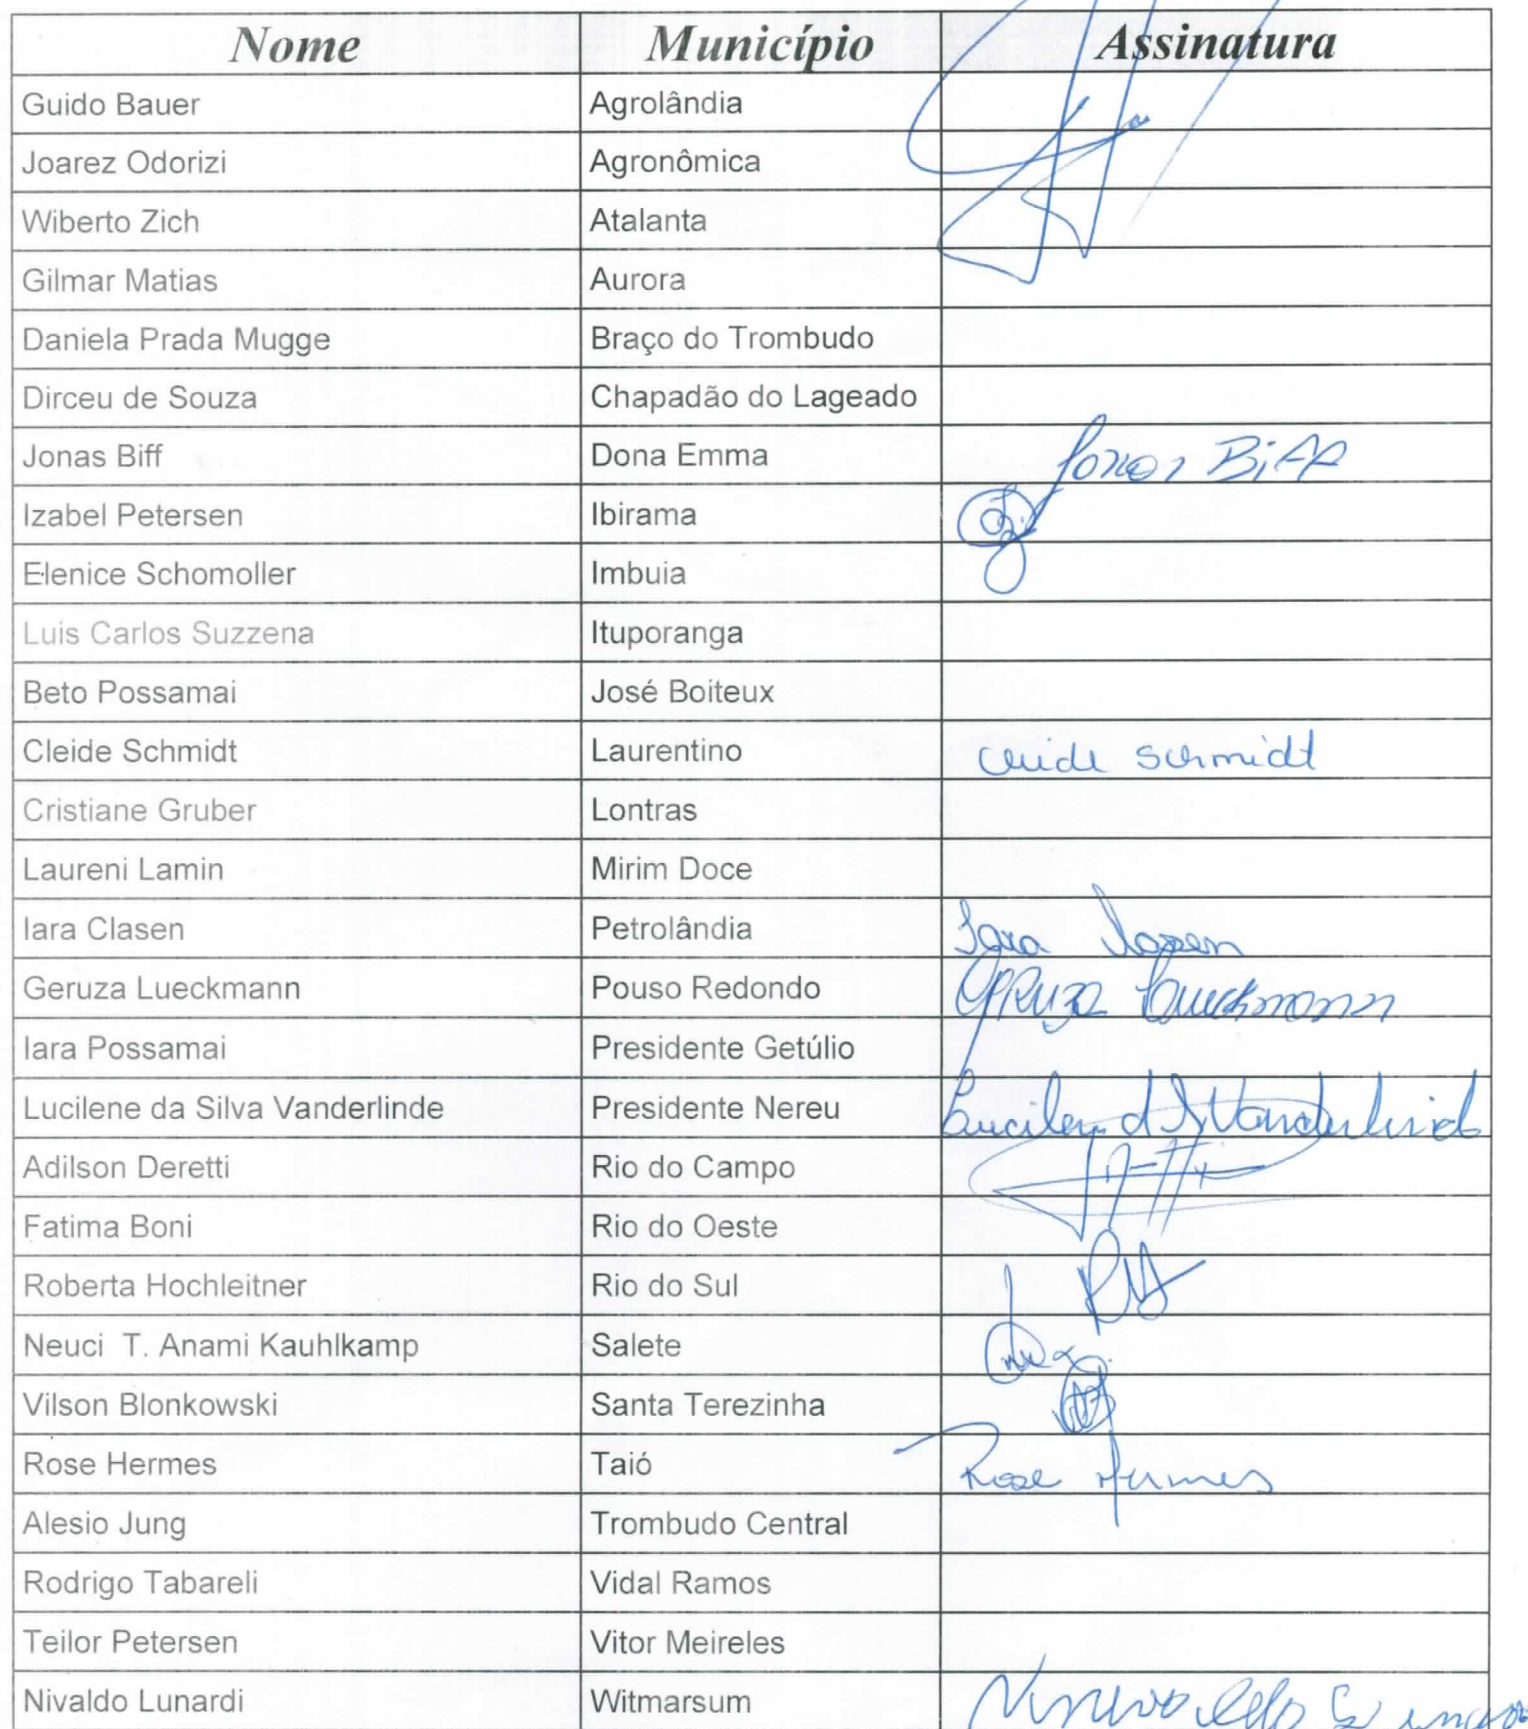 Nome Município Assinatura
Guido Bauer Agrolândia
Joarez Odorizi Agronômica
Wiberto Zich Atalanta
Gilmar Matias Aurora
Daniela Prada Mugge Braço do Trombudo
Dirceu de Souza Chapadão do Lageado
Jonas Biff Dona Emma Jonas Biff
Izabel Petersen Ibirama
Elenice Schomoller Imbuia
Luis Carlos Suzzena Ituporanga
Beto Possamai José Boiteux
Cleide Schmidt Laurentino Cleide Schmidt
Cristiane Gruber Lontras
Laureni Lamin Mirim Doce
Iara Clasen Petrolândia Iara Clasen
Geruza Lueckmann Pouso Redondo Geruza Lueckmann
Iara Possamai Presidente Getúlio
Lucilene da Silva Vanderlinde Presidente Nereu Lucilene d S Vanderlinde
Adilson Deretti Rio do Campo
Fatima Boni Rio do Oeste
Roberta Hochleitner Rio do Sul
Neuci T. Anami Kauhlkamp Salete
Vilson Blonkowski Santa Terezinha
Rose Hermes Taió Rose Hermes
Alesio Jung Trombudo Central
Rodrigo Tabareli Vidal Ramos
Teilor Petersen Vitor Meireles
Nivaldo Lunardi Witmarsum